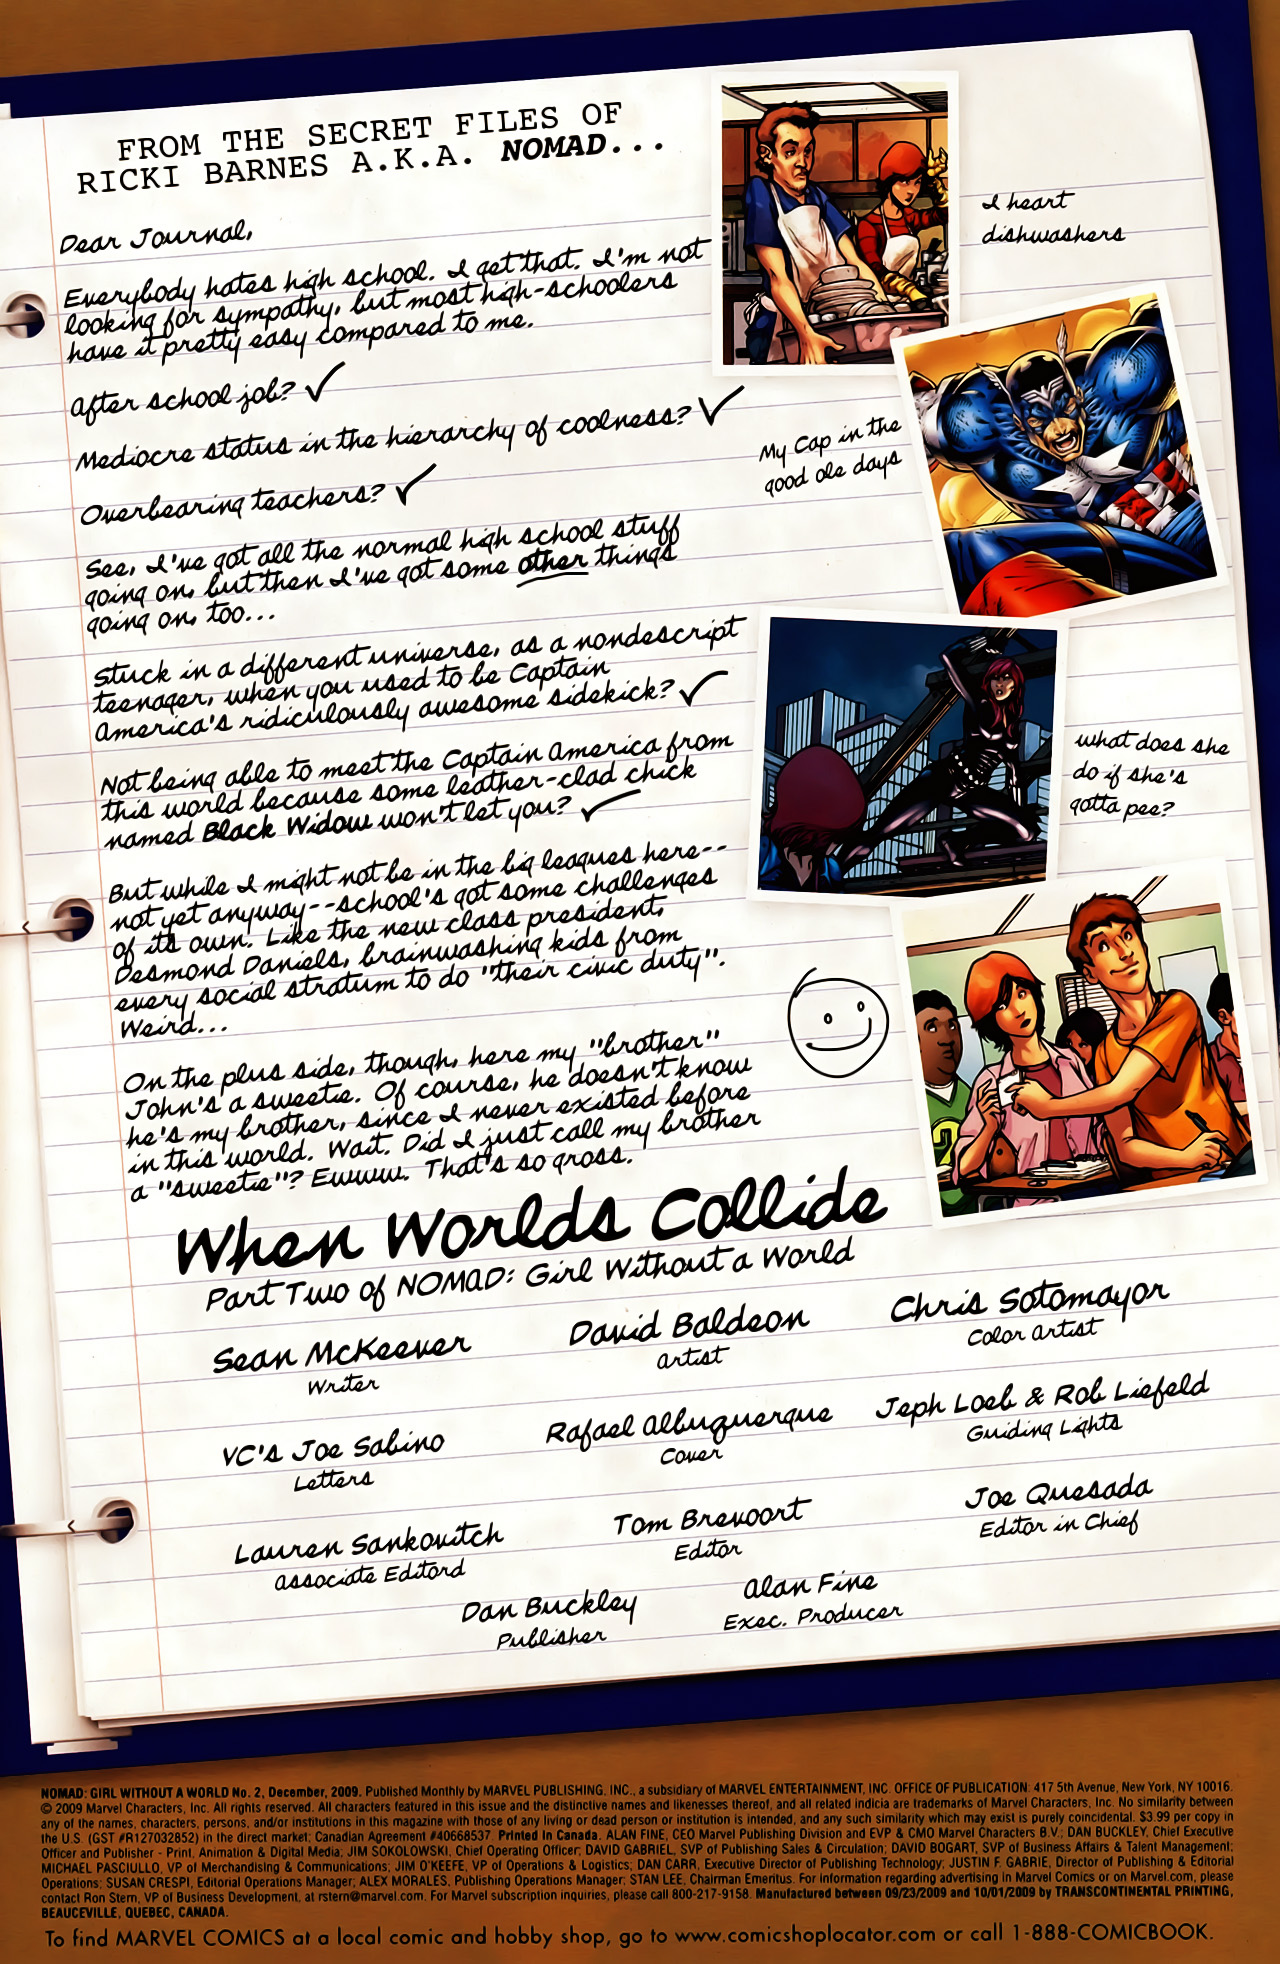 FROM THE SECRET FILES OF
RICKI BARNES A.K.A. NOMAD...
Dear Journal,
Everybody hates high school. I get that. I'm not
looking for sympathy, but most high-schoolers
have it pretty easy compared to me.
After school job? ✓
Mediocre status in the hierarchy of coolness? ✓
Overbearing teachers? ✓
See, I've got all the normal high school stuff
going on, but then I've got some other things
going on, too...
Stuck in a different universe, as a nondescript
teenager, when you used to be Captain
America's ridiculously awesome sidekick? ✓
Not being able to meet the Captain America from
this world because some leather-clad chick
named Black Widow won't let you? ✓
But while I might not be in the big leagues here--
not yet anyway--school's got some challenges
of its own. Like the new class president,
Desmond Daniels, brainwashing kids from
every social stratum to do "their civic duty".
Weird...
On the plus side, though, here my "brother"
John's a sweetie. Of course, he doesn't know
he's my brother, since I never existed before
in this world. Wait. Did I just call my brother
a "sweetie"? Ewww. That's so gross.
I heart
dishwashers
My Cap in the
good ole days
what does she
do if she's
gotta pee?
2
When Worlds Collide
Part Two of NOMAD: Girl Without a World
Sean McKeever
Writer
David Baldeon
Artist
Chris Sotomayor
Color Artist
VC's Joe Sabino
Letters
Rafael Albuquerque
Cover
Jeph Loeb & Rob Liefeld
Guiding Lights
Lauren Sankovitch
Associate Editord
Tom Brevoort
Editor
Joe Quesada
Editor in Chief
Dan Buckley
Publisher
Alan Fine
Exec. Producer
NOMAD: GIRL WITHOUT A WORLD No. 2, December, 2009. Published Monthly by MARVEL PUBLISHING, INC., a subsidiary of MARVEL ENTERTAINMENT, INC. OFFICE OF PUBLICATION: 417 5th Avenue, New York, NY 10016.
© 2009 Marvel Characters, Inc. All rights reserved. All characters featured in this issue and the distinctive names and likenesses thereof, and all related indicia are trademarks of Marvel Characters, Inc. No similarity between
any of the names, characters, persons, and/or institutions in this magazine with those of any living or dead person or institution is intended, and any such similarity which may exist is purely coincidental. $3.99 per copy in
the U.S. (GST #R127032852) in the direct market; Canadian Agreement #40668537. Printed in Canada. ALAN FINE, CEO Marvel Publishing Division and EVP & CMO Marvel Characters B.V.; DAN BUCKLEY, Chief Executive
Officer and Publisher - Print, Animation & Digital Media; JIM SOKOLOWSKI, Chief Operating Officer; DAVID GABRIEL, SVP of Publishing Sales & Circulation; DAVID BOGART, SVP of Business Affairs & Talent Management;
MICHAEL PASCIULLO, VP of Merchandising & Communications; JIM O'KEEFE, VP of Operations & Logistics; DAN CARR, Executive Director of Publishing Technology; JUSTIN F. GABRIE, Director of Publishing & Editorial
Operations; SUSAN CRESPI, Editorial Operations Manager; ALEX MORALES, Publishing Operations Manager; STAN LEE, Chairman Emeritus. For information regarding advertising in Marvel Comics or on Marvel.com, please
contact Ron Stern, VP of Business Development, at rstern@marvel.com. For Marvel subscription inquiries, please call 800-217-9158. Manufactured between 09/23/2009 and 10/01/2009 by TRANSCONTINENTAL PRINTING,
BEAUCEVILLE, QUEBEC, CANADA.
To find MARVEL COMICS at a local comic and hobby shop, go to www.comicshoplocator.com or call 1-888-COMICBOOK.